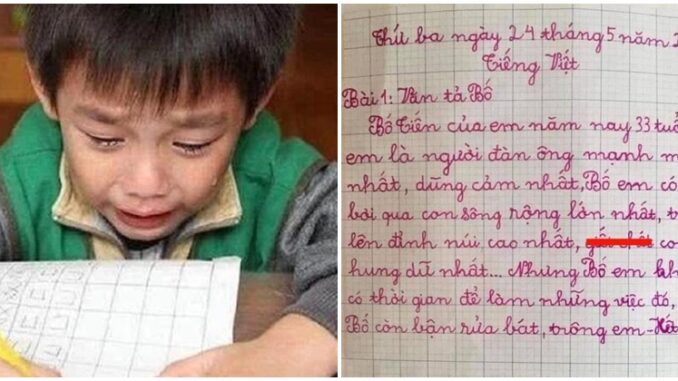 Thứ ba ngày 24 tháng 5 năm 2
Tiếng Việt
Bài 1: Văn tả Bố
Bố Tiến của em năm nay 33 tuổ
em là người đàn ông mạnh m
nhất, dũng cảm nhất, Bố em có
bơi qua con sông rộng lớn nhất, t
lên đỉnh núi cao nhất, co
hung dữ nhất... Nhưng Bố em kh
có thời gian để làm những việc đó,
Bố còn bận rửa bát, trông em - Hết